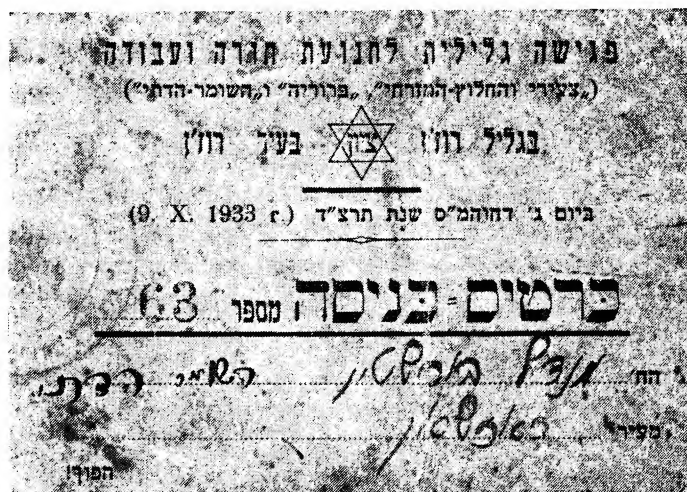 פגישה גלילית לתנועת תורה ועבודה
(„צעירי והחלוץ-המזרחי", „ברוריה" ו„השומר-הדתי")
בגליל רוז'ן ציון בעיר רוז'ן
ביום ג' דחוהמ"ס שנת תרצ"ד (9. X. 1933 r.)
כרטיס-כניסה מספר 63
הח' מנדל השומר הדתי
מעיר
הפוך!